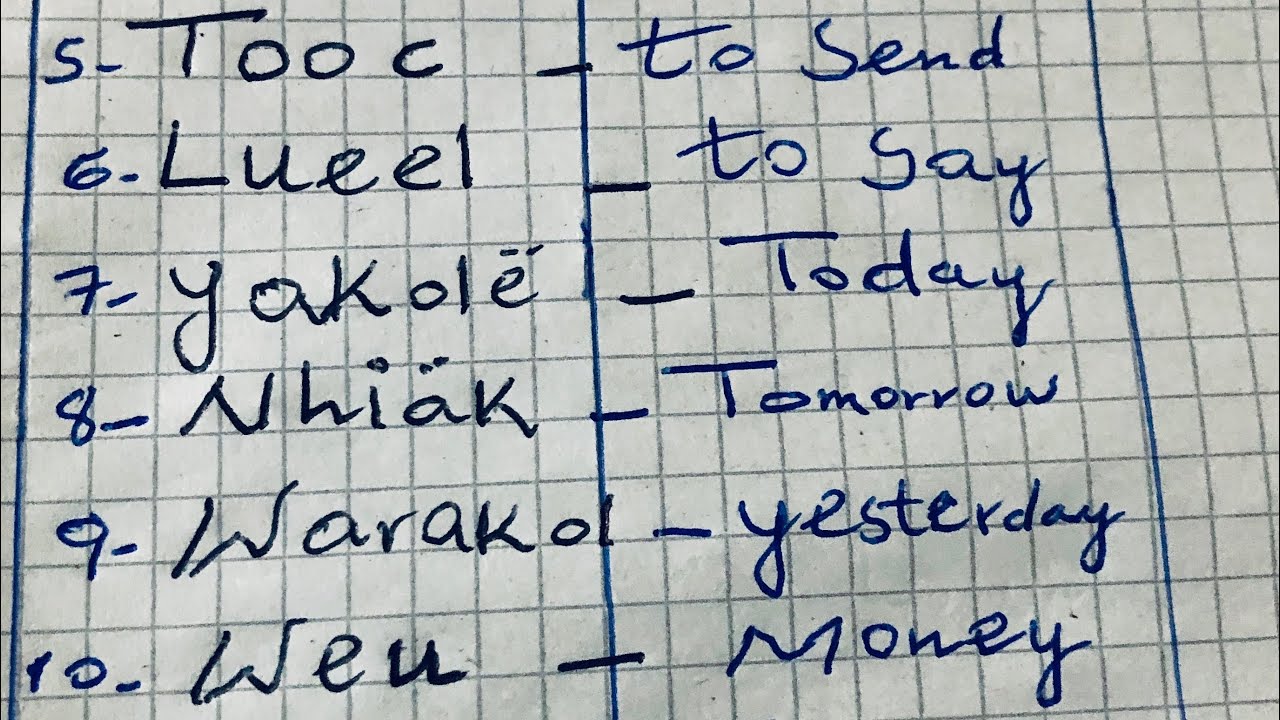 5- Tooc - to Send
6- Lueel - to Say
7- Yakolë - Today
8- Nhiäk - Tomorrow
9- Warakol - yesterday
10- Weu - Money